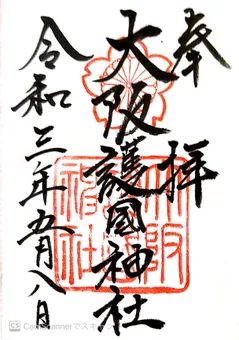 奉拝
大阪護國神社
令和三年五月八日
大阪護國神社
CamScannerでスキャン